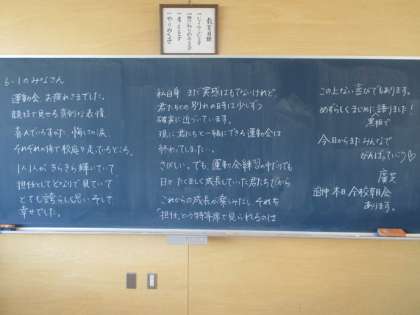 教育目標
6-1のみなさん
運動会 お疲れさまでした。
競技で見せる真剣な表情
喜んでいるすがた、悔し涙、
それぞれの係で軽やかなところ。
1人1人がきらきら輝いていて
担任としてとなりで見ていて
とても誇らしく思い、そして
幸せでした。
私自身 まだ実感はもてないけれど、
君たちとの別れの日が少しずつ
確実に近づいています。
現に君たちと一緒にできる運動会は
終わってしまいました。
さびしい。でも、運動会練習の中だけでも
日々たくましく成長していた君たちだから
これからの成長が楽しみだし、それを
「担任」という特等席で見られるのは
この上ない喜びでもあります。
めずらしくまじめに語りました!
黒板で
今日からまたみんなで
がんばっていこう♡
本日 全校朝会
あります。